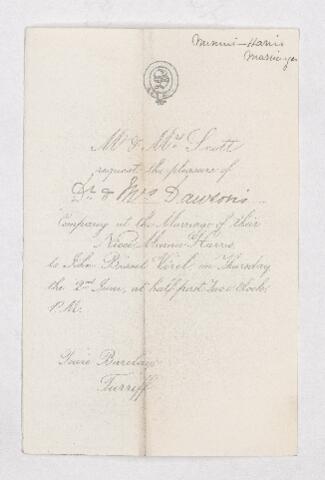 Minnie Harris
Marriage
Mr & Mrs Scott
request the pleasure of
Dr & Mrs Dawson's
Company at the Marriage of their
Niece Minnie Harris
to John Bisset
on Thursday
the 2nd June, at half past Two o'clock
P.M.
Towie Barclay
Turriff